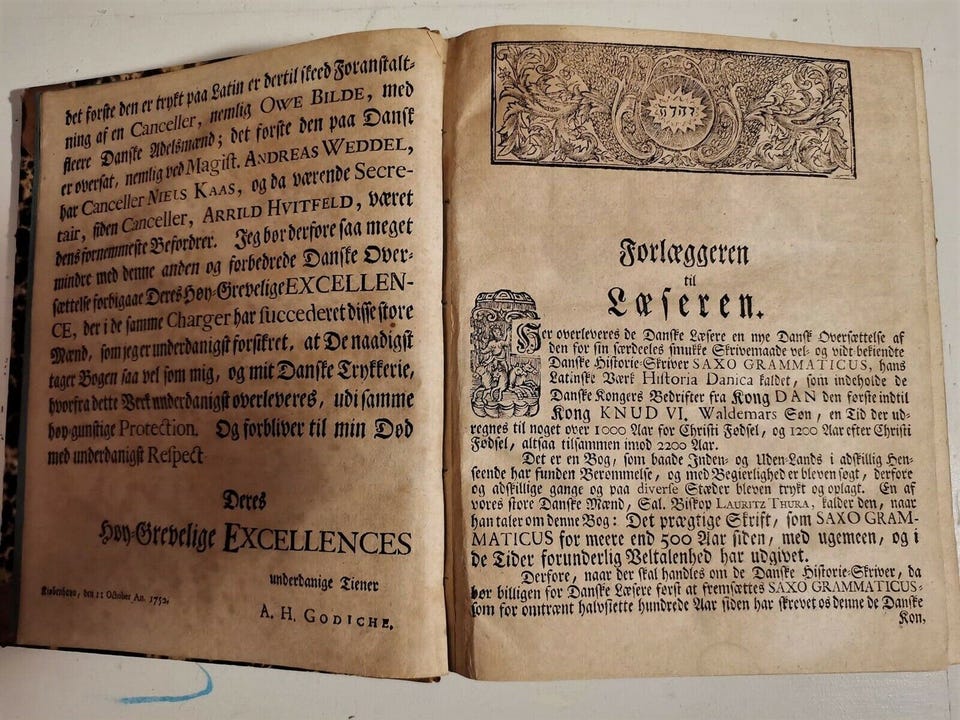 det første den er trykt paa Latin er dertil skeed Foranstalt-
ning af en Canceller, nemlig OWE BILDE, med
fleere Danske Adelsmænd; det første den paa Dansk
er oversat, nemlig ved Magist. ANDREAS WEDDEL,
har Canceller NIELS KAAS, og da værende Secre-
tair, siden Canceller, ARRILD HVITFELD, været
dens fornemmeste Befordrer. Jeg bør derfore saa meget
mindre med denne anden og forbedrede Danske Over-
sættelse forbigaae Deres Høy-Grevelige EXCELLEN-
CE, der i de samme Charger har succederet disse store
Mænd, som jeg er underdanigst forsikret, at De naadigst
tager Bogen saa vel som mig, og mit Danske Trykkerie,
hvorfra dette Verk underdanigst overleveres, udi samme
høy-gunstige Protection. Og forbliver til min Død
med underdanigst Respect
Deres
Høy-Grevelige EXCELLENCES
underdanige Tiener
Kiøbenhavn, den 11 October An. 1752.
A. H. GODICHE.
יהוה
Forlæggeren
til
Læseren.
Her overleveres de Danske Læsere en nye Dansk Oversættelse af
den for sin særdeeles smukke Skrivemaade vel- og vidt-bekiendte
Danske Historie-Skriver SAXO GRAMMATICUS, hans
Latinske Værk Historia Danica kaldet, som indeholde de
Danske Kongers Bedrifter fra Kong DAN den første indtil
Kong KNUD VI. Waldemars Søn, en Tid der ud-
regnes til noget over 1000 Aar for Christi Fødsel, og 1200 Aar efter Christi
Fødsel, altsaa tilsammen imod 2200 Aar.
Det er en Bog, som baade Inden- og Uden-Lands i adskillig Hen-
seende har funden Berømmelse, og med Begierlighed er bleven søgt, derfore
og adskillige gange og paa diverse Stæder bleven trykt og oplagt. En af
vores store Danske Mænd, Sal. Biskop LAURITZ THURA, kalder den, naar
han taler om denne Bog: Det prægtige Skrift, som SAXO GRAM-
MATICUS for meere end 500 Aar siden, med ugemeen, og i
de Tider forunderlig Veltalenhed har udgivet.
Derfore, naar der skal handles om de Danske Historie-Skriver, da
bør billigen for Danske Læsere først at fremsættes SAXO GRAMMATICUS-
som for omtrænt halvfiette hundrede Aar siden har skrevet os denne de Danske
Kon,